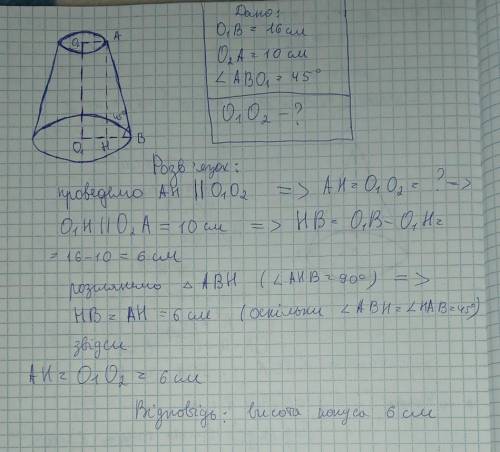 Дано:
O₁B = 16 см
O₂A = 10 см
∠ABO₁ = 45°
O₁O₂ - ?
O₂ A
45°
O₁ H B
Розв'язок:
проведемо AH || O₁O₂ => AH = O₁O₂ = ? ->
O₁H || O₂A = 10 см => HB = O₁B - O₁H =
= 16 - 10 = 6 см
розглянемо △ ABH (∠AHB = 90°) =>
HB = AH = 6 см (оскільки ∠ABH = ∠HAB = 45°)
звідси
AH = O₁O₂ = 6 см
Відповідь: висота конуса 6 см